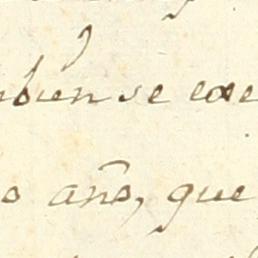 mbien se exe
o año, que